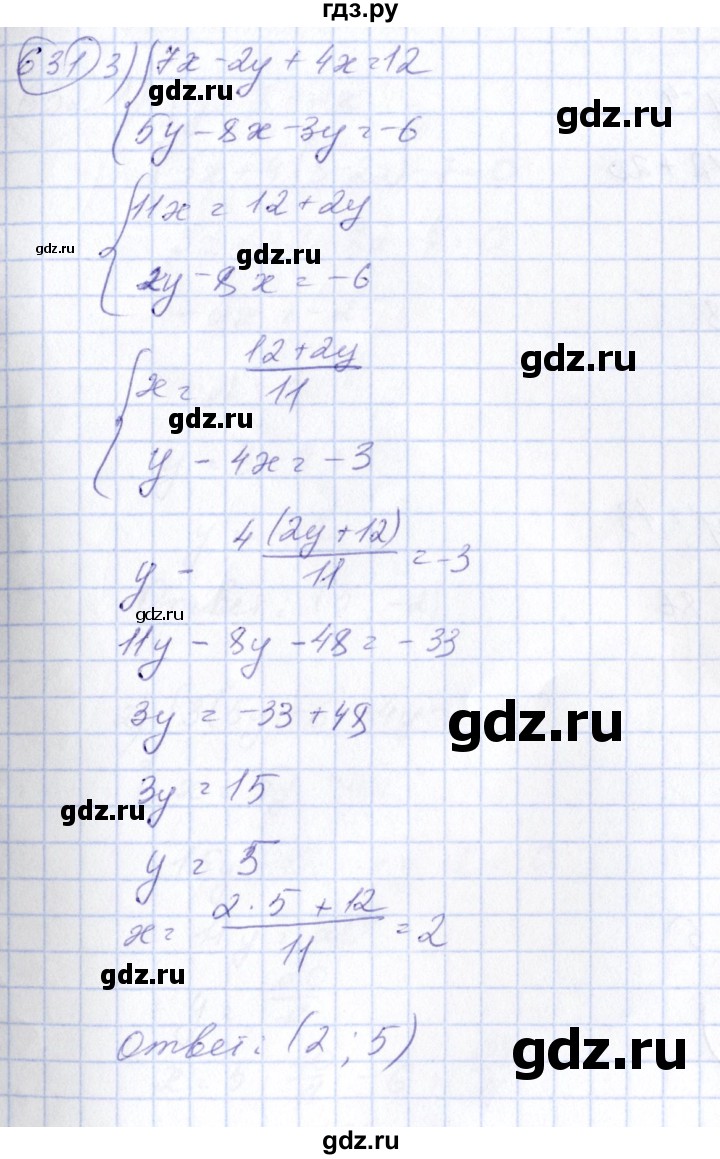 гдз.ру
631 3) { 7x - 2y + 4x = 12
gdz.ru
gdz.ru
5y - 8x - 3y = -6
{ 11x = 12 + 2y
gdz.ru
gdz.ru
2y - 8x = -6
{ x = (12 + 2y)/11
gdz.ru
gdz.ru
y - 4x = -3
y - 4(2y + 12)/11 = -3
gdz.ru
11y - 8y - 48 = -33
3y = -33 + 48
gdz.ru
3y = 15
gdz.ru
y = 5
x = (2 · 5 + 12)/11 = 2
gdz.ru
Ответ: (2 ; 5)
gdz.ru
gdz.ru